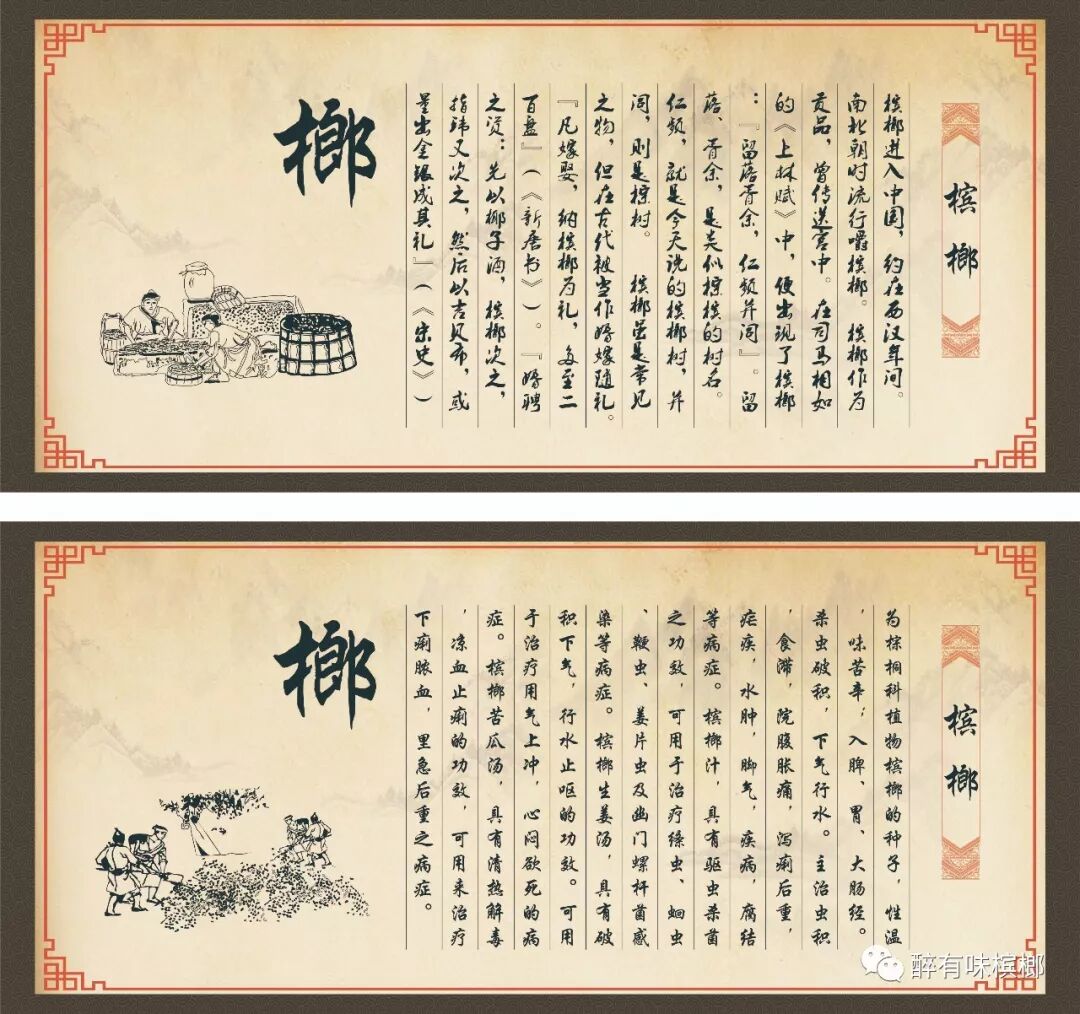 槟榔
槟榔进入中国，约在西汉年间。
南北朝时流行嚼槟榔。 槟榔作为
贡品，曾传送宫中。在司马相如
的《上林赋》中，便出现了槟榔
：『留落胥余，仁频并闾』。留
落、胥余，是类似棕榇的树名。
仁频，就是今天说的槟榔树，并
闾，则是棕树。 槟榔虽是常见
之物，但在古代被当作婚嫁随礼。
『凡嫁娶，纳槟榔为礼，多至二
百盘』（《新唐书》）。『婚聘
之资：先以椰子酒，槟榔次之，
指玮又次之，然后以吉贝布，或
量出金银成其礼』（《宋史》）
榔
槟榔
为棕榈科植物槟榔的种子，性温
，味苦辛；入脾、胃、大肠经。
杀虫破积，下气行水。主治虫积
，食滞，脘腹胀痛，泻痢后重，
疟疾，水肿，脚气，痰病，腐结
等病症。槟榔汁，具有驱虫杀菌
之功效，可用于治疗绦虫、蛔虫
、鞭虫、姜片虫及幽门螺杆菌感
染等病症。槟榔生姜汤，具有破
积下气，行水止呕的功效。可用
于治疗用气上冲，心闷欲死的病
症。槟榔苦瓜汤，具有清热解毒
，凉血止痢的功效，可用来治疗
下痢脓血，里急后重之病症。
榔
醉有味槟榔